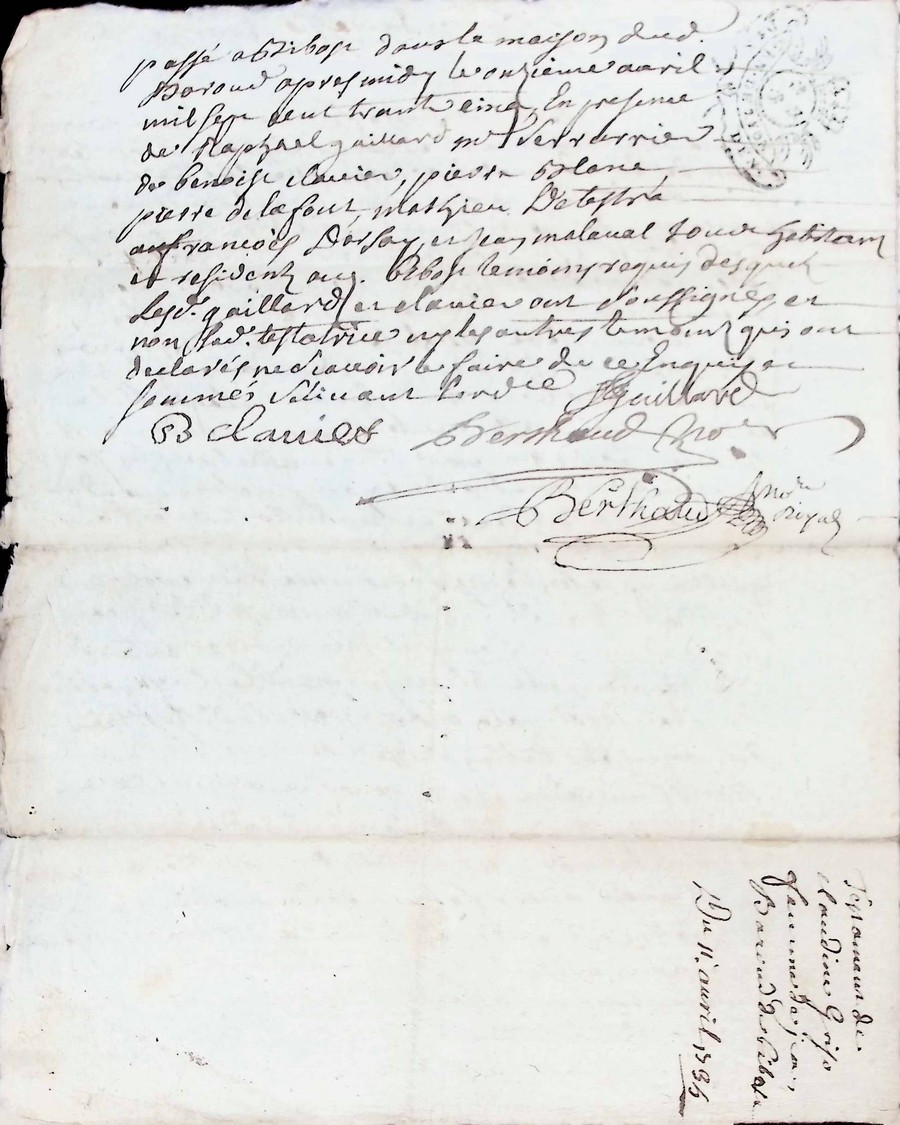 passé a Ribost dans la maison dud.
Baroud apres midy le onzieme avril
mil sept cent trante cinq, En presence
de Raphael gaillard mre Serrurier
de benoist clavier, pierre Blanc,
pierre delafont, mathieu
françois et jean malaval tous habitans
et residents aud. Ribost temoins requis desquels
Lesd. gaillard et clavier ont Soussignés et
non Lad. testatrice ny les autres temoins qui ont
declarés ne Scavoir le faire de ce Enquis et
sommés Suivant Lordce JGuillard
B Clavier Berthaud Nore
Berthaud Nore Royal
Testament de
claudine Gris
femme de jean
Baroud de Ribost
Du 11. avril 1735